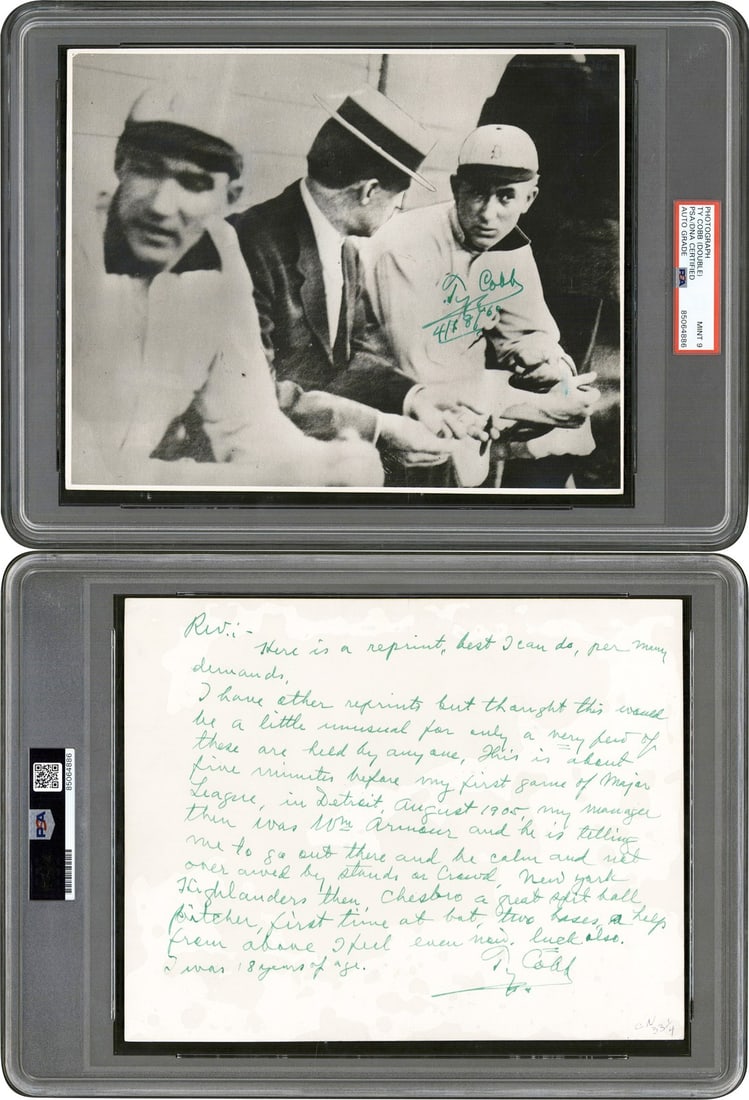 D
Ty Cobb
4/8/60
PHOTOGRAPH
TY COBB (DOUBLE)
PSA/DNA CERTIFIED
AUTO GRADE
PSA
MINT 9
85064886
PSA
85064886
Rev.:-
Here is a reprint, best I can do, per many
demands,
I have other reprints but thought this would
be a little unusual for only a very few of
these are held by anyone, This is about
five minutes before my first game of Major
League, in Detroit, August 1905, my manager
then was Wm Armour and he is telling
me to go out there and be calm and not
over awed by stands or crowd, New York
Highlanders then, Chesbro a great spit ball
pitcher, first time at bat, two bases, a help
from above I feel even now. luck also.
I was 18 years of age.
Ty Cobb